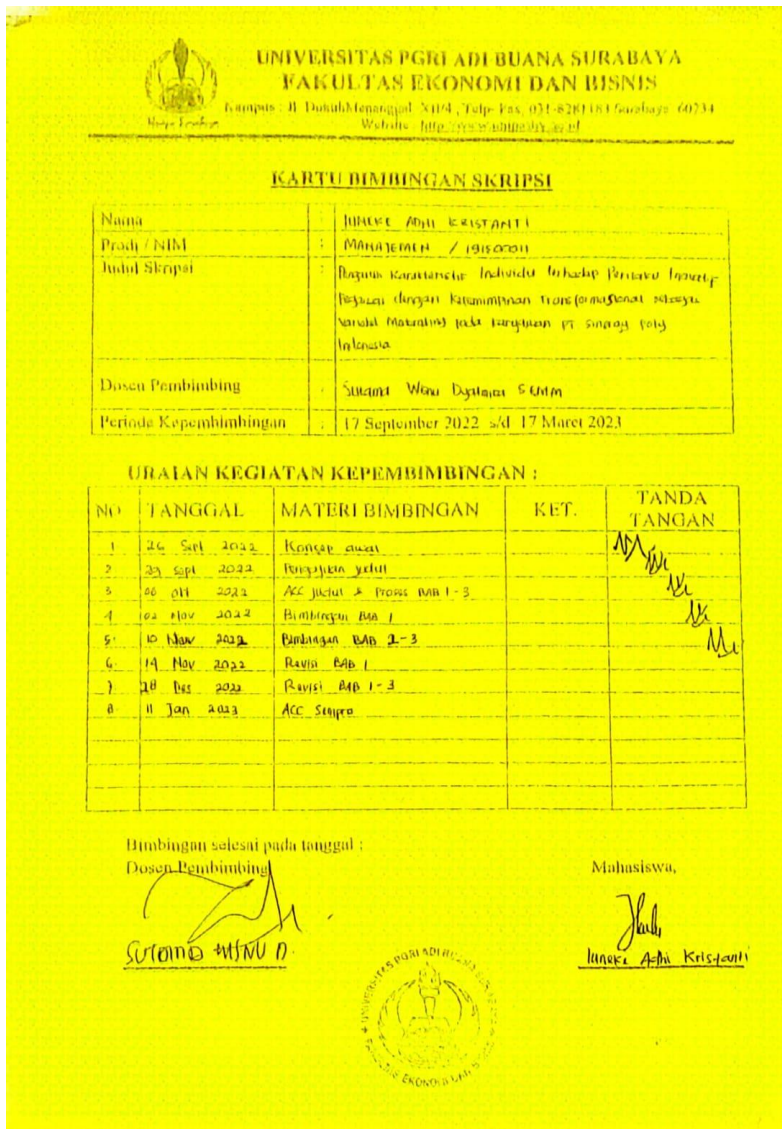 UNIVERSITAS PGRI ADI BUANA SURABAYA
FAKULTAS EKONOMI DAN BISNIS
Kampus : Jl. Dukuh Menanggal XII/4, Telp- Fax. 031-8281183 Surabaya 60234
Website : http://www.unipasby.ac.id
KARTU BIMBINGAN SKRIPSI
Nama : IUNEKE ADHI KRISTANTI
Prodi / NIM : MANAJEMEN /
Judul Skripsi : Pengaruh Karakteristik Individu terhadap Perilaku Inovatif
Pegawai dengan Kepemimpinan Transformasional sebagai
Variabel pada karyawan PT Sinergy Poly
Indonesia
Dosen Pembimbing : Sutama Wisnu
Periode Kepembimbingan : 17 September 2022 s/d 17 Maret 2023
URAIAN KEGIATAN KEPEMBIMBINGAN :
NO TANGGAL MATERI BIMBINGAN KET. TANDA TANGAN
1 26 Sept 2022 Konsep awal
2 29 Sept 2022 Pengajuan judul
3 06 okt 2022 ACC judul & Proses BAB 1-3
4 02 Nov 2022 Bimbingan BAB 1
5. 10 Nov 2022 Bimbingan BAB 2-3
6. 14 Nov 2022 Revisi BAB 1
7. 28 Des 2022 Revisi BAB 1-3
8. 11 Jan 2023 ACC Sempro
Bimbingan selesai pada tanggal :
Dosen Pembimbing Mahasiswa,
WISNU D. Iuneke Adhi Kristanti
UNIVERSITAS PGRI ADI BUANA SURABAYA
FAKULTAS EKONOMI DAN BISNIS